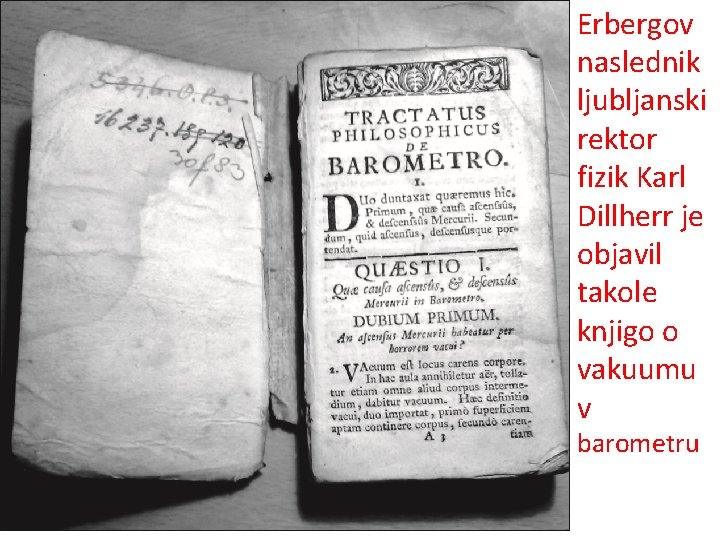 5346.O.f.3.
16237.189-120
30f83
TRACTATUS
PHILOSOPHICUS
DE
BAROMETRO.
I.
DUo duntaxat quæremus hìc.
Primum, quæ causa ascensûs,
& descensûs Mercurii. Secun-
dum, quid ascensus, descensusque por-
tendat.
QUÆSTIO I.
Quæ causa ascensûs, & descensûs
Mercurii in Barometro.
DUBIUM PRIMUM.
An ascensus Mercurii habeatur per
horrorem vacui?
1. VAcuum est locus carens corpore.
In hac aula annihiletur aër, tolla-
tur etiam omne aliud corpus interme-
dium, dabitur vacuum. Hæc definitio
vacui, duo importat, primò superficiem
aptam continere corpus, secundò caren-
A 3 tiam
Erbergov
naslednik
ljubljanski
rektor
fizik Karl
Dillherr je
objavil
takole
knjigo o
vakuumu
v
barometru